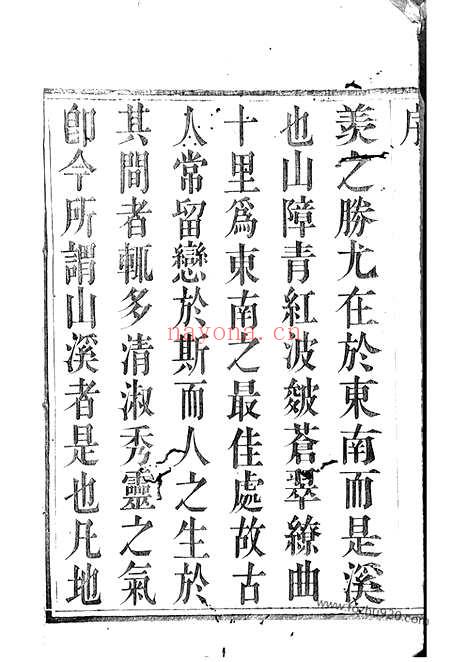 序
羙之勝尤在於東南而是溪
也山障青紅波皴蒼翠繚曲
十里爲東南之最佳處故古
人常留戀於斯而人之生於
其間者輒多清淑秀靈之氣
卽今所謂山溪者是也凡地
nayona.cn
www.fozhu920.com